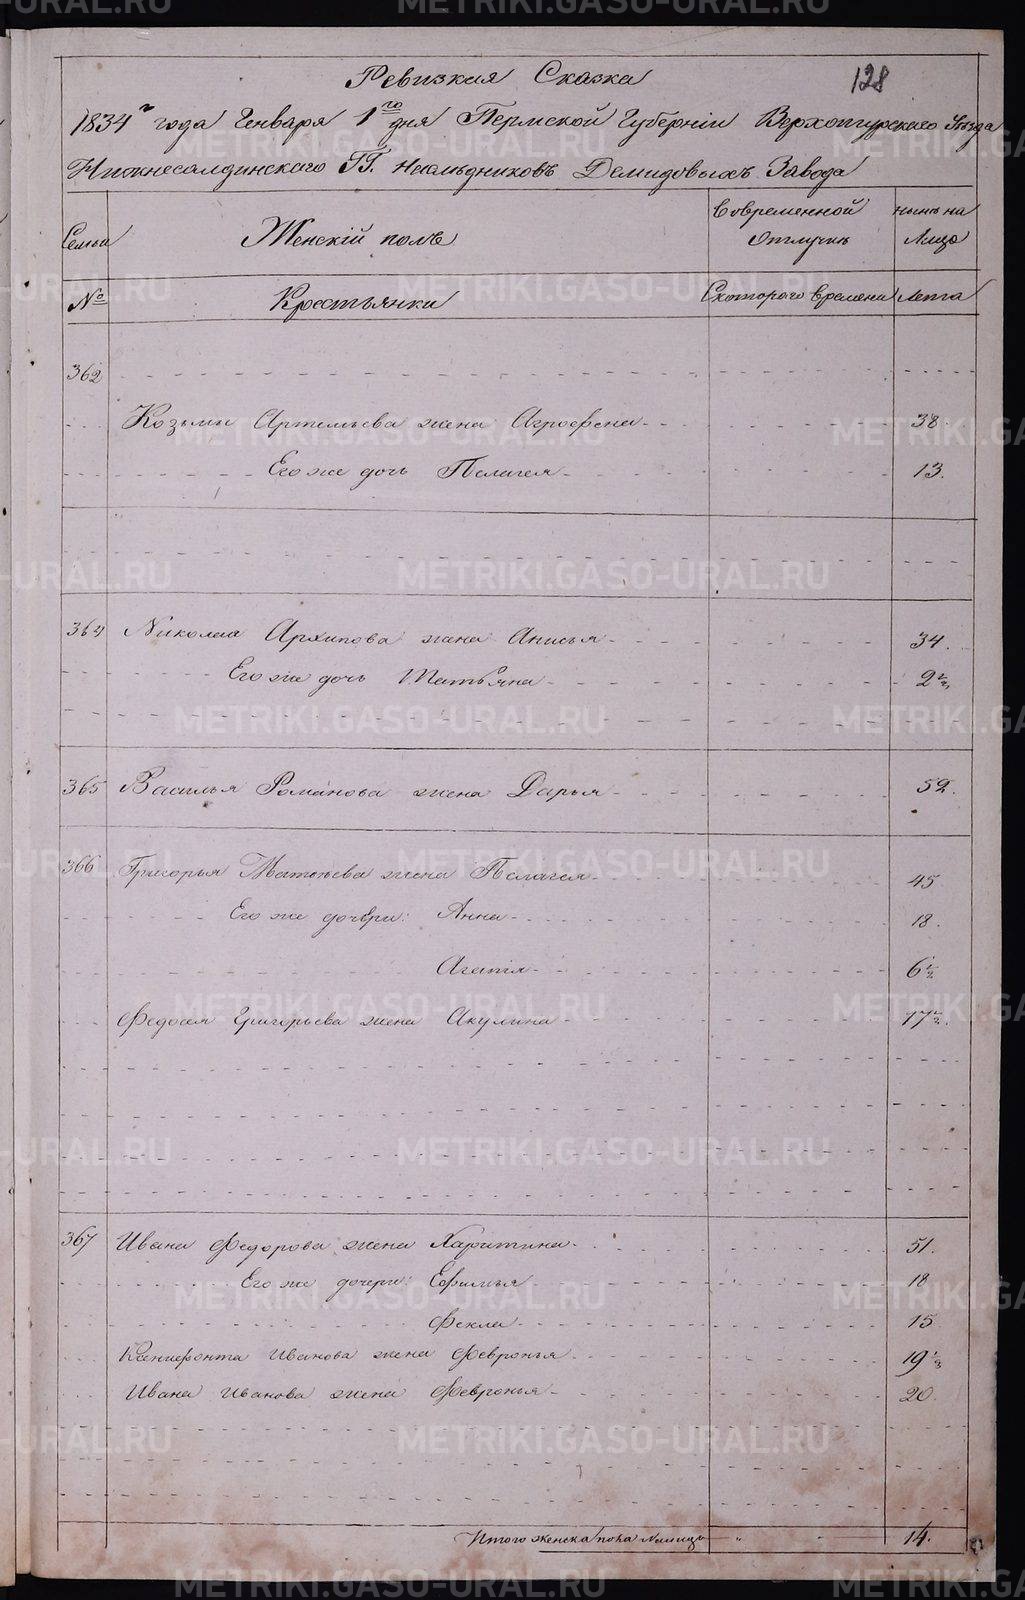 Ревизкая Сказка
128
1834г года Генваря 1го дня Пермской Губернiи Верхотурскаго Уѣзда
Нижнесалдинскаго ГГ. Наслѣдниковъ Демидовыхъ Завода
Семьи Женскiй полъ Вовременной Отлучкѣ нынѣ на Лицо
№ Крестьянки Скотораго времени Лета
362
Козьмы Артемьева жена Агрофена 38
Его же дочь Пелагея 13.
364 Николая Архипова жена Анисья 34.
Его же дочь Татьяна 2 1/2
365 Василья Романова жена Дарья 52.
366 Григорья Матвѣева жена Пелагея 45
Его же дочери: Анна 18.
Агапiя 6 1/2
Федосея Григорьева жена Акулина 17 1/2.
367 Ивана Федорова жена Харитина 51.
Его же дочери: Ефимья 18
Фекла 15
Ксенофонта Иванова жена Февронья 19 1/2
Ивана Иванова жена Февронья 20.
Итого женска пола налицо 14.
METRIKI.GASO-URAL.RU